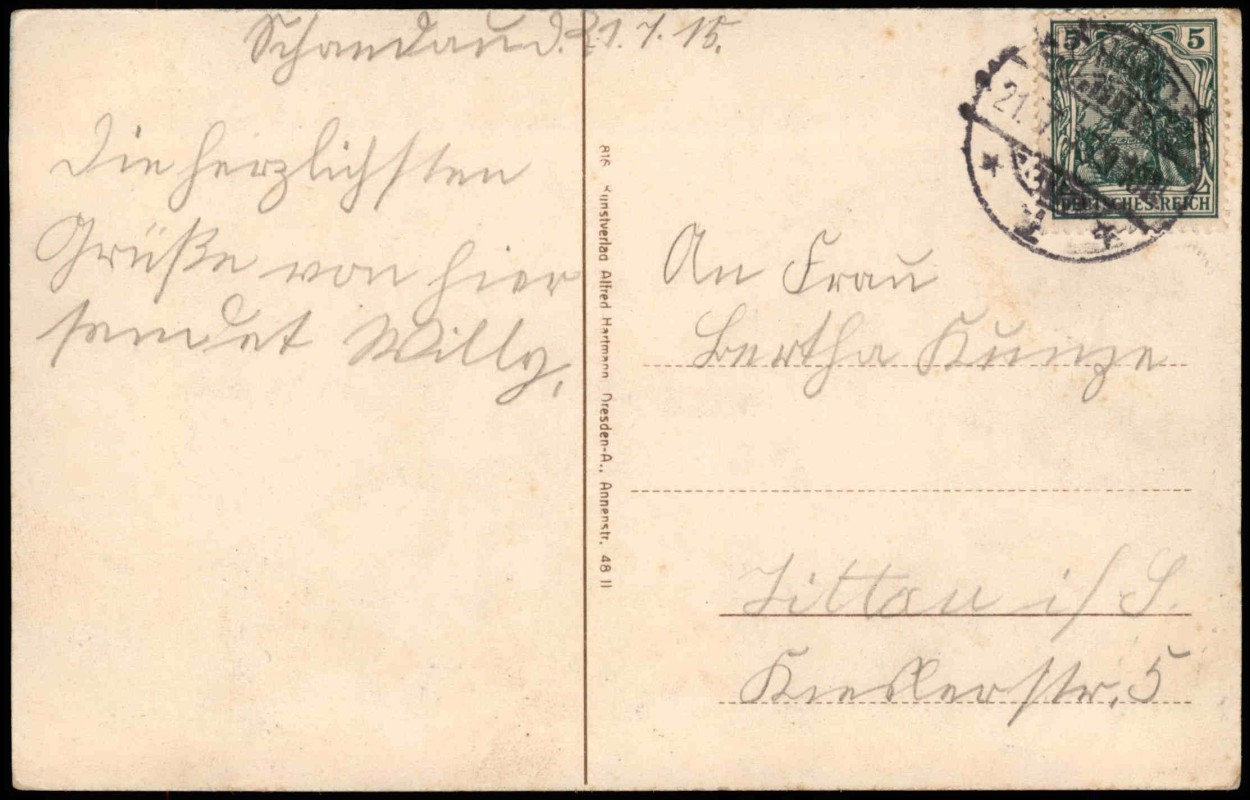 Schandau d. 21.7.15.
Die herzlichsten
Grüße von hier
sendet Willy.
816 Kunstverlag Alfred Hartmann, Dresden-A., Annenstr. 48 II
5 5
DEUTSCHES REICH
21.
An Frau
Bertha Kunze
Zittau i/S.
5